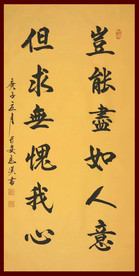 豈能盡如人意
但求無愧我心
庚子五月